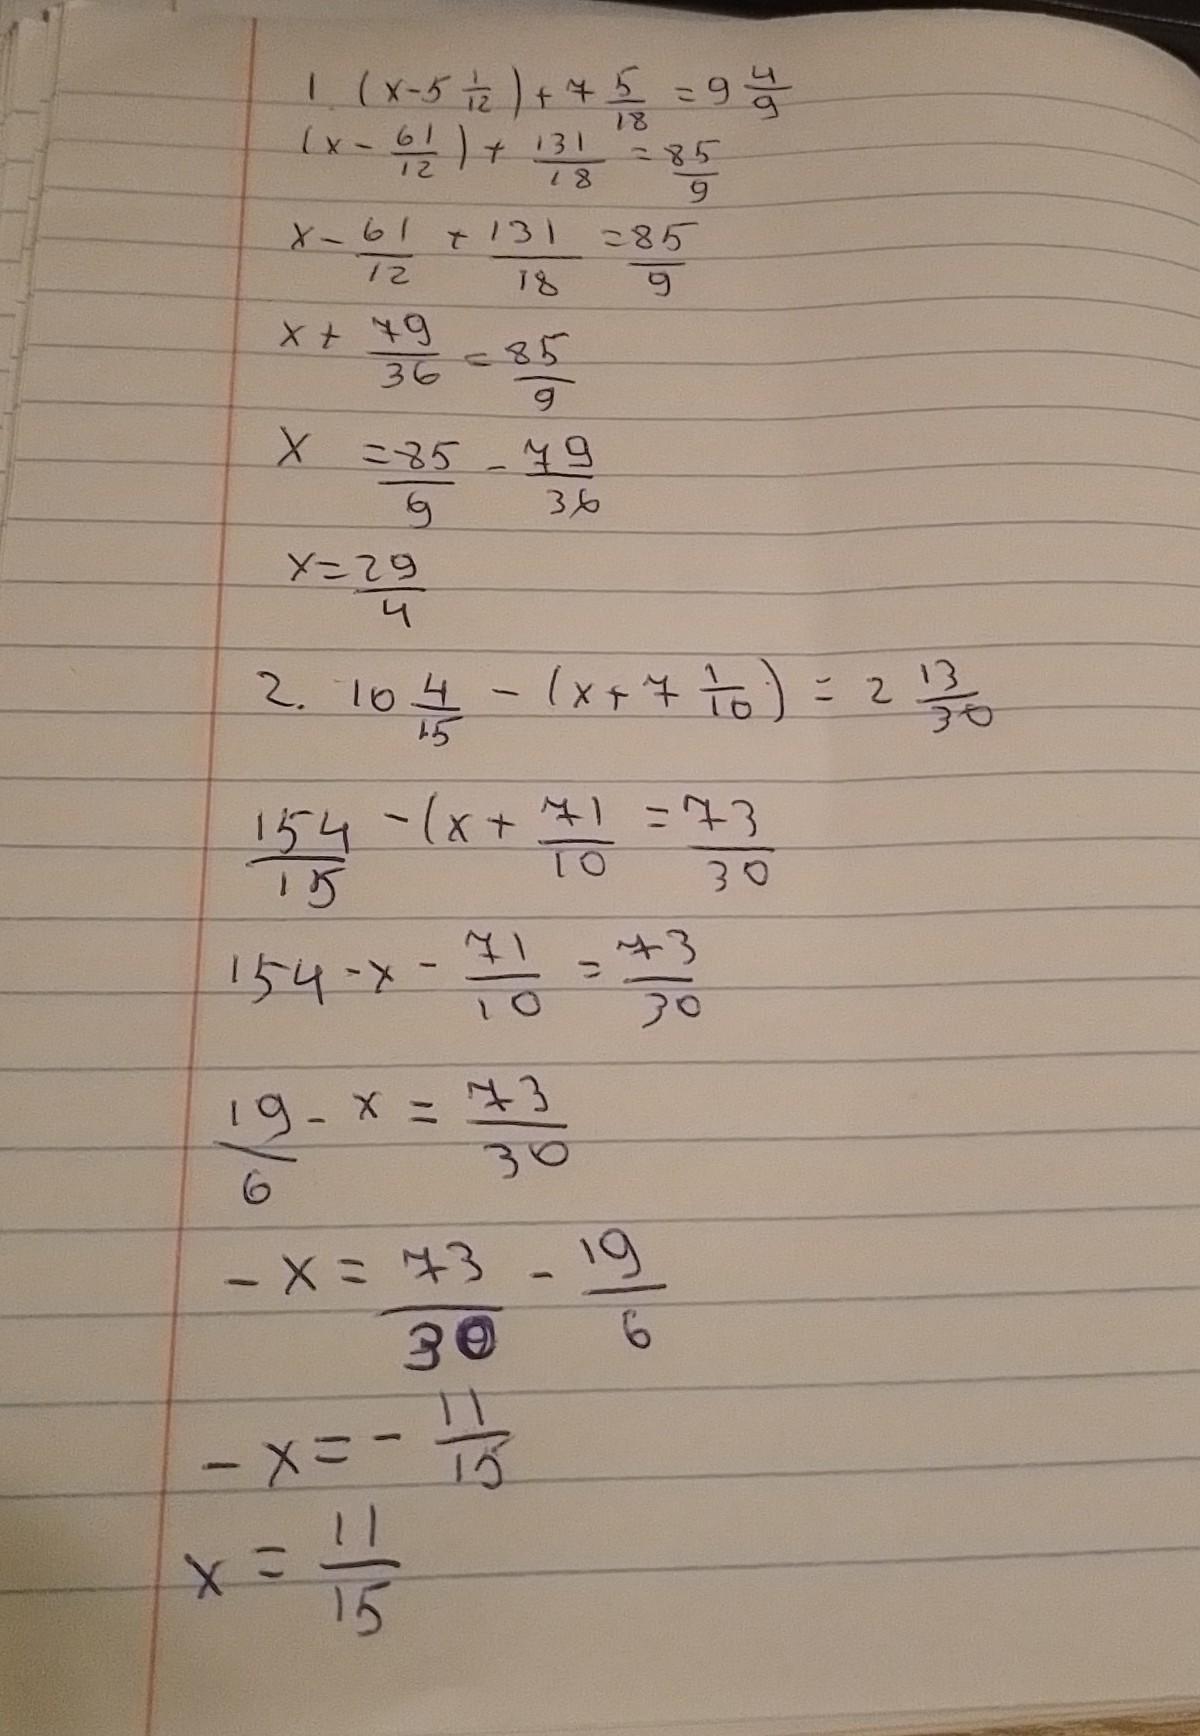 1. (x-5 1/12) + 7 5/18 = 9 4/9
(x - 61/12) + 131/18 = 85/9
x - 61/12 + 131/18 = 85/9
x + 79/36 = 85/9
x = 85/9 - 79/36
x = 29/4
2. 10 4/15 - (x + 7 1/10) = 2 13/30
154/15 - (x + 71/10 = 73/30
154 - x - 71/10 = 73/30
19/6 - x = 73/30
- x = 73/30 - 19/6
- x = - 11/15
x = 11/15